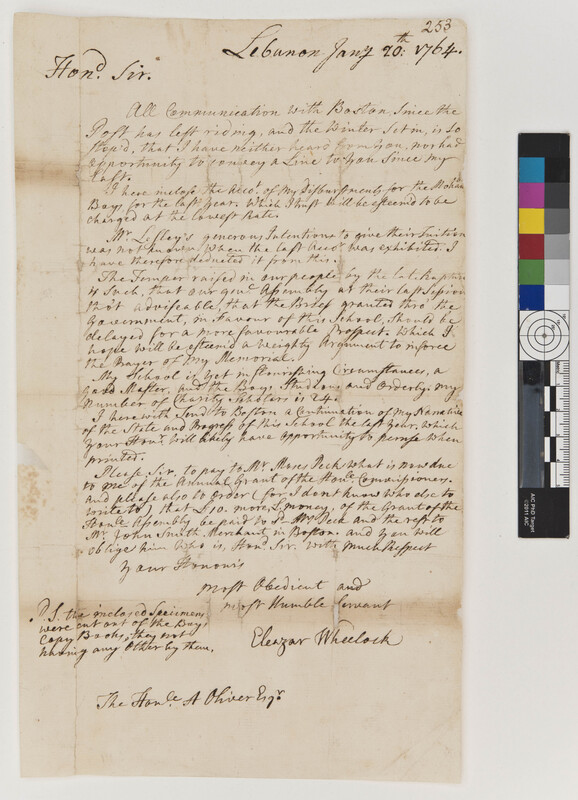 253
Lebanon Janʸ 20:th 1764.
Honᵈ. Sir.
All Communication with Boston, Since the
Post has left riding, and the Winter Set in, is so
Stop'd, that I have neither heard from You, nor had
opportunity to convey a Line to You Since my
last.
I here inclose the Accᵗ. of my Disbursments for the Mohawk
Boys for the last Year. which I trust will be esteemd to be
charged at the lowest Rate.
Mʳ. Lesley's generous Intentions to give their Tuition
was not known when the last Accᵗ. was exhibited. I
have therefore deducted it from this.
The Temper raised in our people by the late Rupture
is Such, that our Genˡ Assembly at their last Session
tho't adviseable, that the Brief granted thro' the
Government, in favour of this School, Should be
delayed for a more favourable Prospect. which I
hope will be esteemd a weighty Argument to inforce
the Prayer of my Memorial.
My School is Yet in flourishing Circumstances, a
Good Master, and the Boys Studious and Orderly. my
Number of Charity Scholars is 24.
I herewith Send to Boston a Continuation of my Narrative
of the State and Progress of this School the last Year, which
Your Honʳ. will likely have opportunity to peruse when
printed.
Please Sir. to pay to Mʳ. Moses Peck what is now due
to me of the Annual Grant of the Honˡᵉ. Commissioners.
and please also to order (for I dont know who else to
write to) that £10. more, L money, of the Grant of the
Honˡᵉ Assembly be paid to Sᵈ Mʳ Peck and the rest to
Mʳ. John Smith Merchant, in Boston. and You will
oblige him who is, Honᵈ. Sir. with Much Respect
Your Honours
most Obedient and
most Humble Servant
Eleazar Wheelock
P.S. the inclosed Specimens
were cut out of the Boys
Copy Books, they not
having any Other by them.
The Honˡᵉ. A Oliver Esqʳ
AIC PhD Target
©2011 AIC